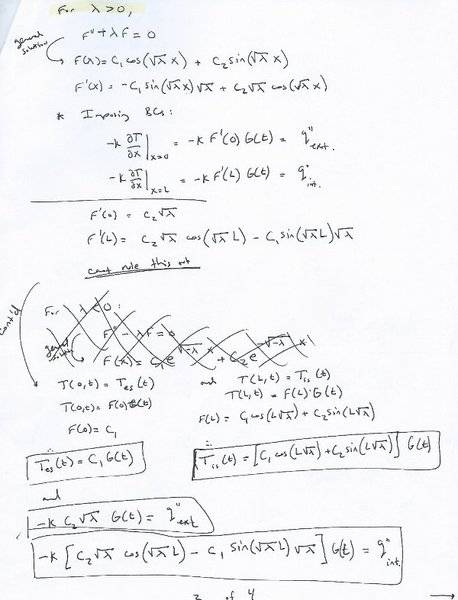 For λ>0,
general solution
F" + λF = 0
F(x) = C₁ cos(√λ x) + C₂ sin(√λ x)
F'(x) = -C₁ sin(√λ x)√λ + C₂√λ cos(√λ x)
* Imposing BCs:
-k ∂T/∂x |x=0 = -k F'(0) G(t) = q"ext.
-k ∂T/∂x |x=L = -k F'(L) G(t) = q"int.
F'(0) = C₂√λ
F'(L) = C₂√λ cos(√λ L) - C₁ sin(√λ L)√λ
cant rule this out
cont'd
For λ<0:
F" - λF = 0
general solution
F(x) = C₁e^(√-λ x) + C₂e^(-√-λ x)
T(0,t) = Tes(t) and T(L,t) = Tis(t)
T(0,t) = F(0)G(t) T(L,t) = F(L)·G(t)
F(0) = C₁ F(L) = C₁ cos(L√λ) + C₂ sin(L√λ)
∴ ∴
Tes(t) = C₁ G(t) Tis(t) = [C₁ cos(L√λ) + C₂ sin(L√λ)] G(t)
and
-k C₂√λ G(t) = q"ext
-k [C₂√λ cos(√λ L) - C₁ sin(√λ L)√λ] G(t) = q"int.
of 4 →